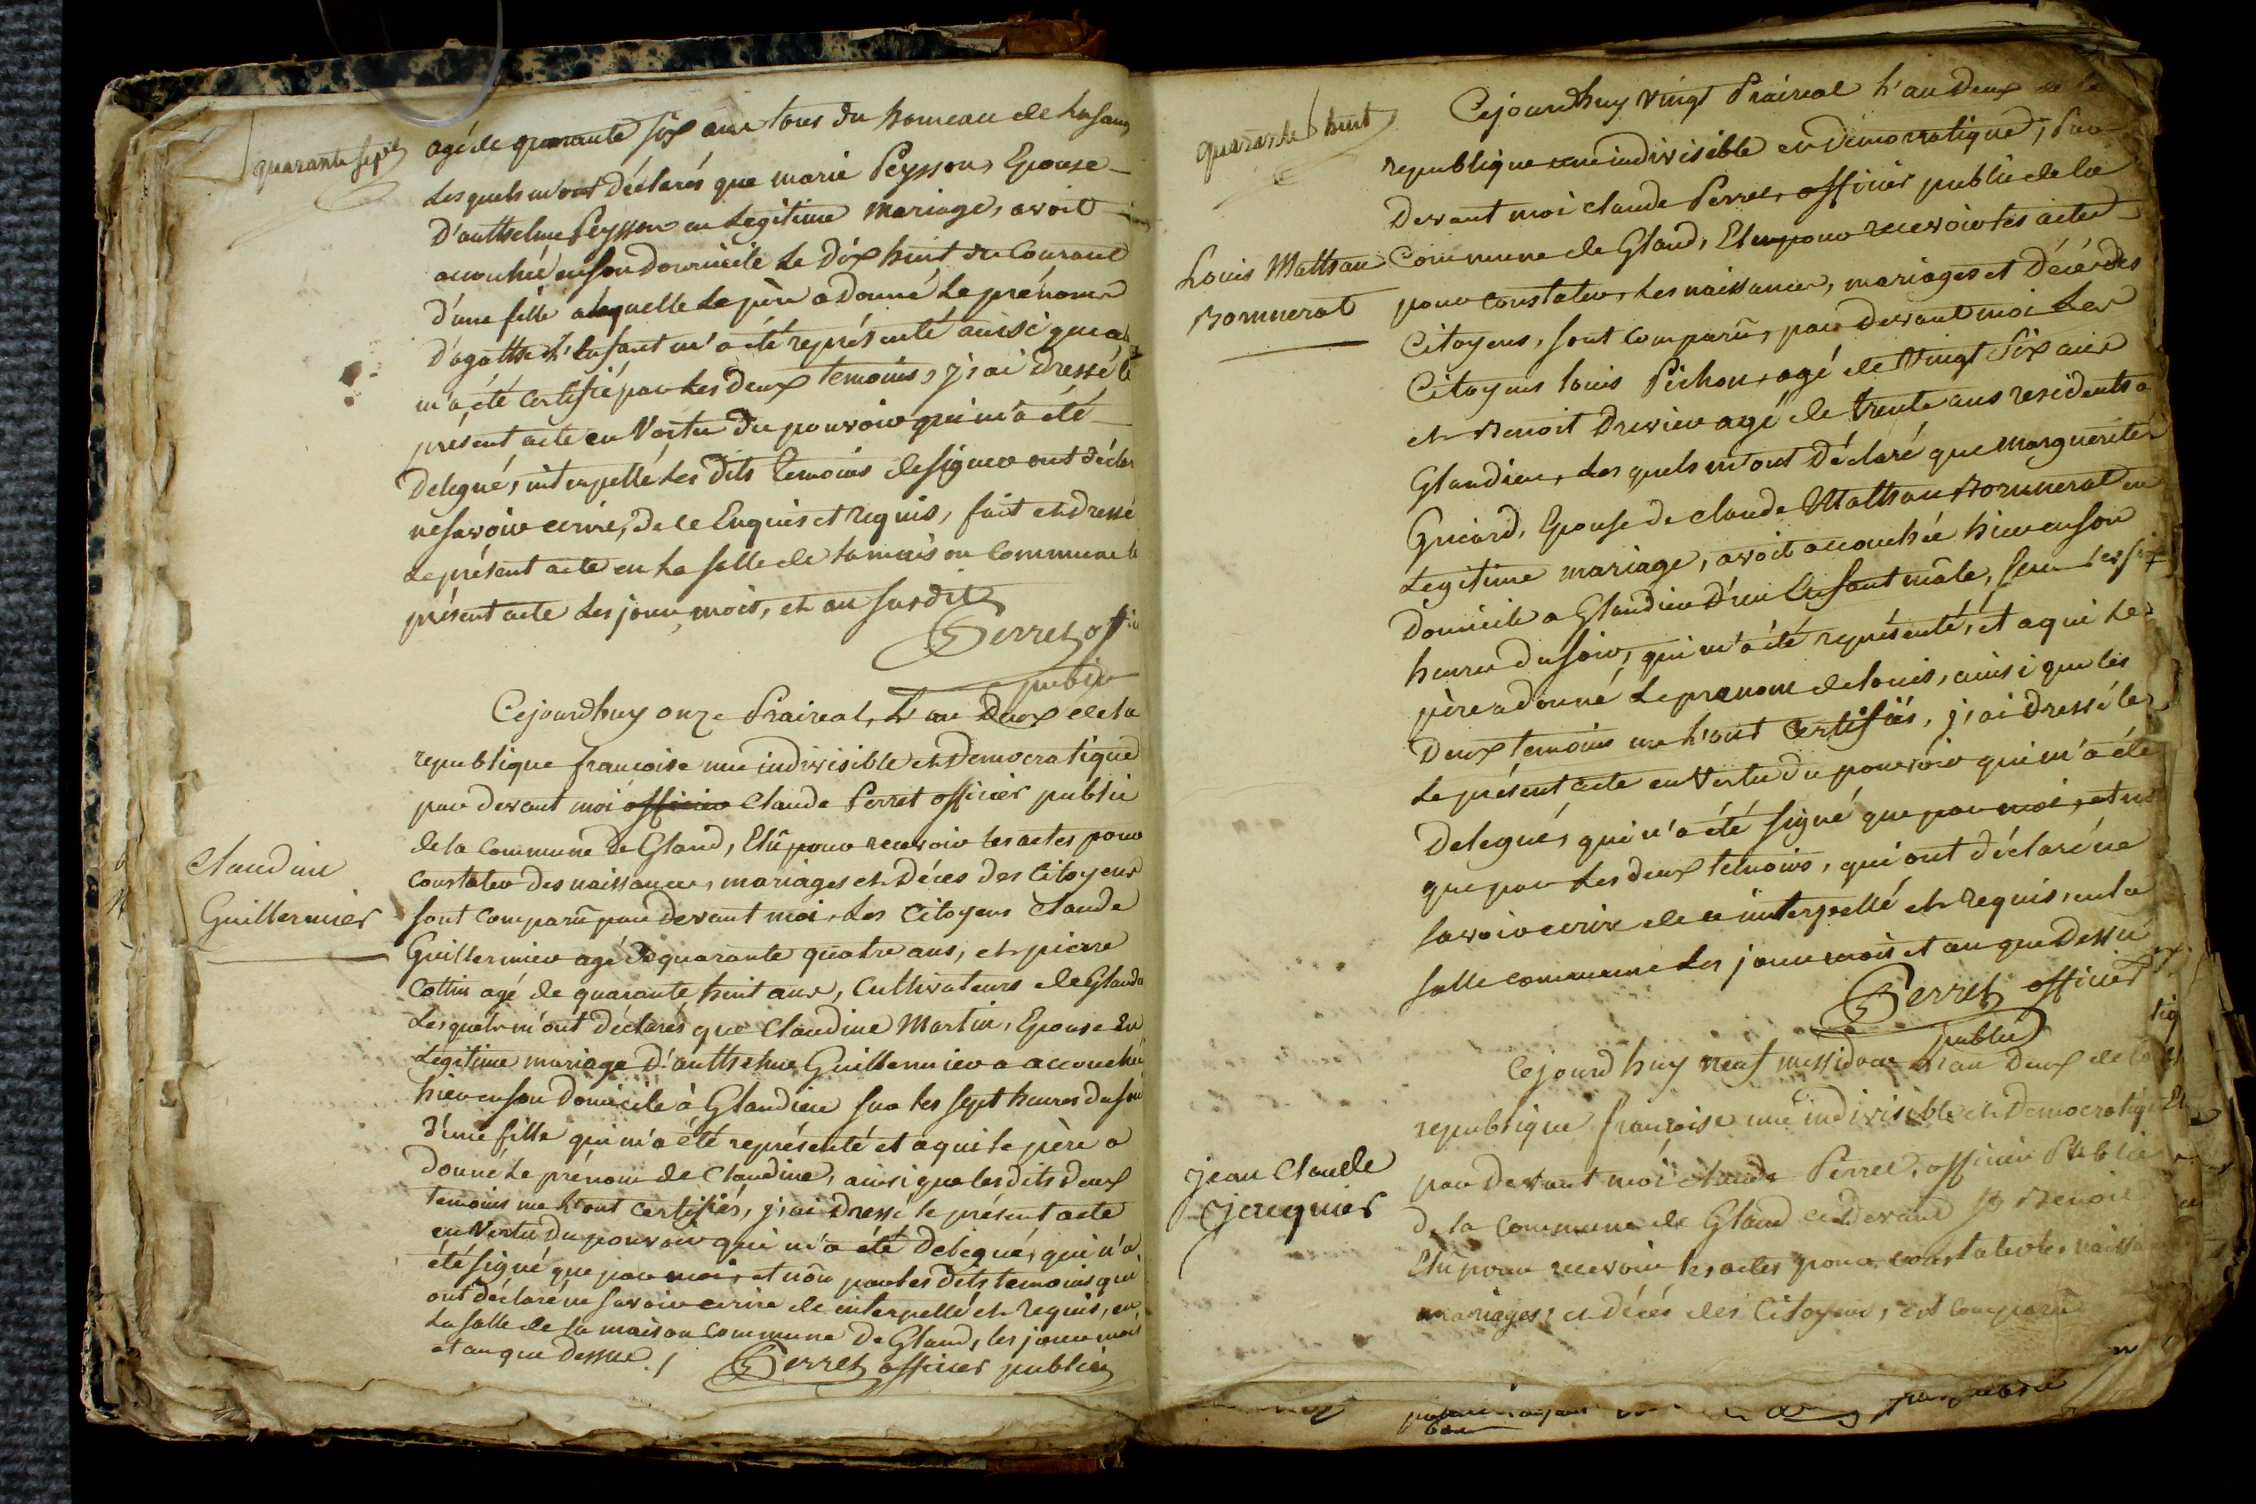 quarante sept
agé de quarante six ans tous du hameau de
Lesquels m'ont déclarés que marie Peysson, Epouse
D'anthelme Peysson en Legitime mariage, avoit
accouchée en son domicile Le Dix huit du Courant
d'une fille a laquelle Le père a Donné Le prénom
d'agathe L'Enfant m'a été représenté ainsi que
m'a été Certifié par Les deux temoins, j'ai dressé le
présent acte en Vertu du pouvoir qui m'a été
Delegué, interpellé Les dits temoins de signer ont déclar
ne savoir ecrire, de ce Enquis et requis, fait et dressé
Le présent acte en La salle de la maison Commune le
présent acte Les jour, mois, et an susdits
Perret offi
public
Cejourdhuy onze Praireal, L'an Deux de la
republique francoise une indivisible et Democratique
par devant moi officier Claude Perret officier public
de la Commune de Gland, Elû pour recevoir les actes pour
Constater des naissances, mariages et Déces des Citoyens
Claudine
Guillermier
sont Comparû par devant moi, Les Citoyens Claude
Guillermier agé de quarante quatre ans, et pierre
Cottin agé de quarante huit ans, Cultivateurs de Gland
Lesquels m'ont déclarés que Claudine Martin, Epouse En
Legitime mariage D'anthelme Guillermier a accouchée
hier en son Domicile à Glandieu sur les sept heures du soir
d'une fille qui m'a été représenté et a qui le père a
donné Le prénom de Claudine, ainsi que les dits deux
temoins me L'ont Certifiés, j'ai Dressé le présent acte
en Vertu du pouvoir qui m'a été Delegué, qui n'a
été signé que par moi, et non par les dits temoins qui
ont déclaré ne savoir ecrire de ce interpellé et Requis, en
La salle de la maison Commune De Gland, les jour mois
et an que Dessus ./ Perret officier public
quarante huit
Cejourdhuy Vingt Prairial L'an Deux de la
republique une indivisible et Democratique, Par
Devant moi Claude Perret, officier public de la
Louis Mathan
Bornnerat
Commune de Gland, Elu pour recevoir les actes
pour Constater, Les naissances, mariages et Décés des
Citoyens, sont Comparû, par Devant moi Les
Citoyens Louis Pichon, agé de Vingt Six ans
et Benoit Drevieu agé de trente ans residents a
Glandieu, Les quels m'ont Déclaré que marguerite
Guicard, Epouse de Claude Mathan Bornnerat en
Legitime mariage, avoit accouchée hier en son
Domicile a Glandieu D'un Enfant mâle, sur les six
heures du soir, qui m'a été représenté, et a qui Le
père a donné Le prenom de Louis, ainsi que les
Deux temoins me L'ont Certifiés, j'ai Dressé le
Le présent acte en Vertu du pouvoir qui m'a été
Delegué, qui n'a été signé que par moi, et non
que par Les deux temoins, qui ont déclaré ne
savoir ecrire de ce interpellé et Requis, en la
salle commune Les jour mois et an que Dessus
Perret officier
public
Cejourd huy neuf messidor L'an Deux de la
republique françoise une indivisible et Democratique
Jean Claude
Jacquier
par Devant moi Claude Perret, officier Public
de la Commune de Gland cidevant St Benoit
Elu pour recevoir les actes pour constater les naissa
mariages, et décés des Citoyens, est Comparû